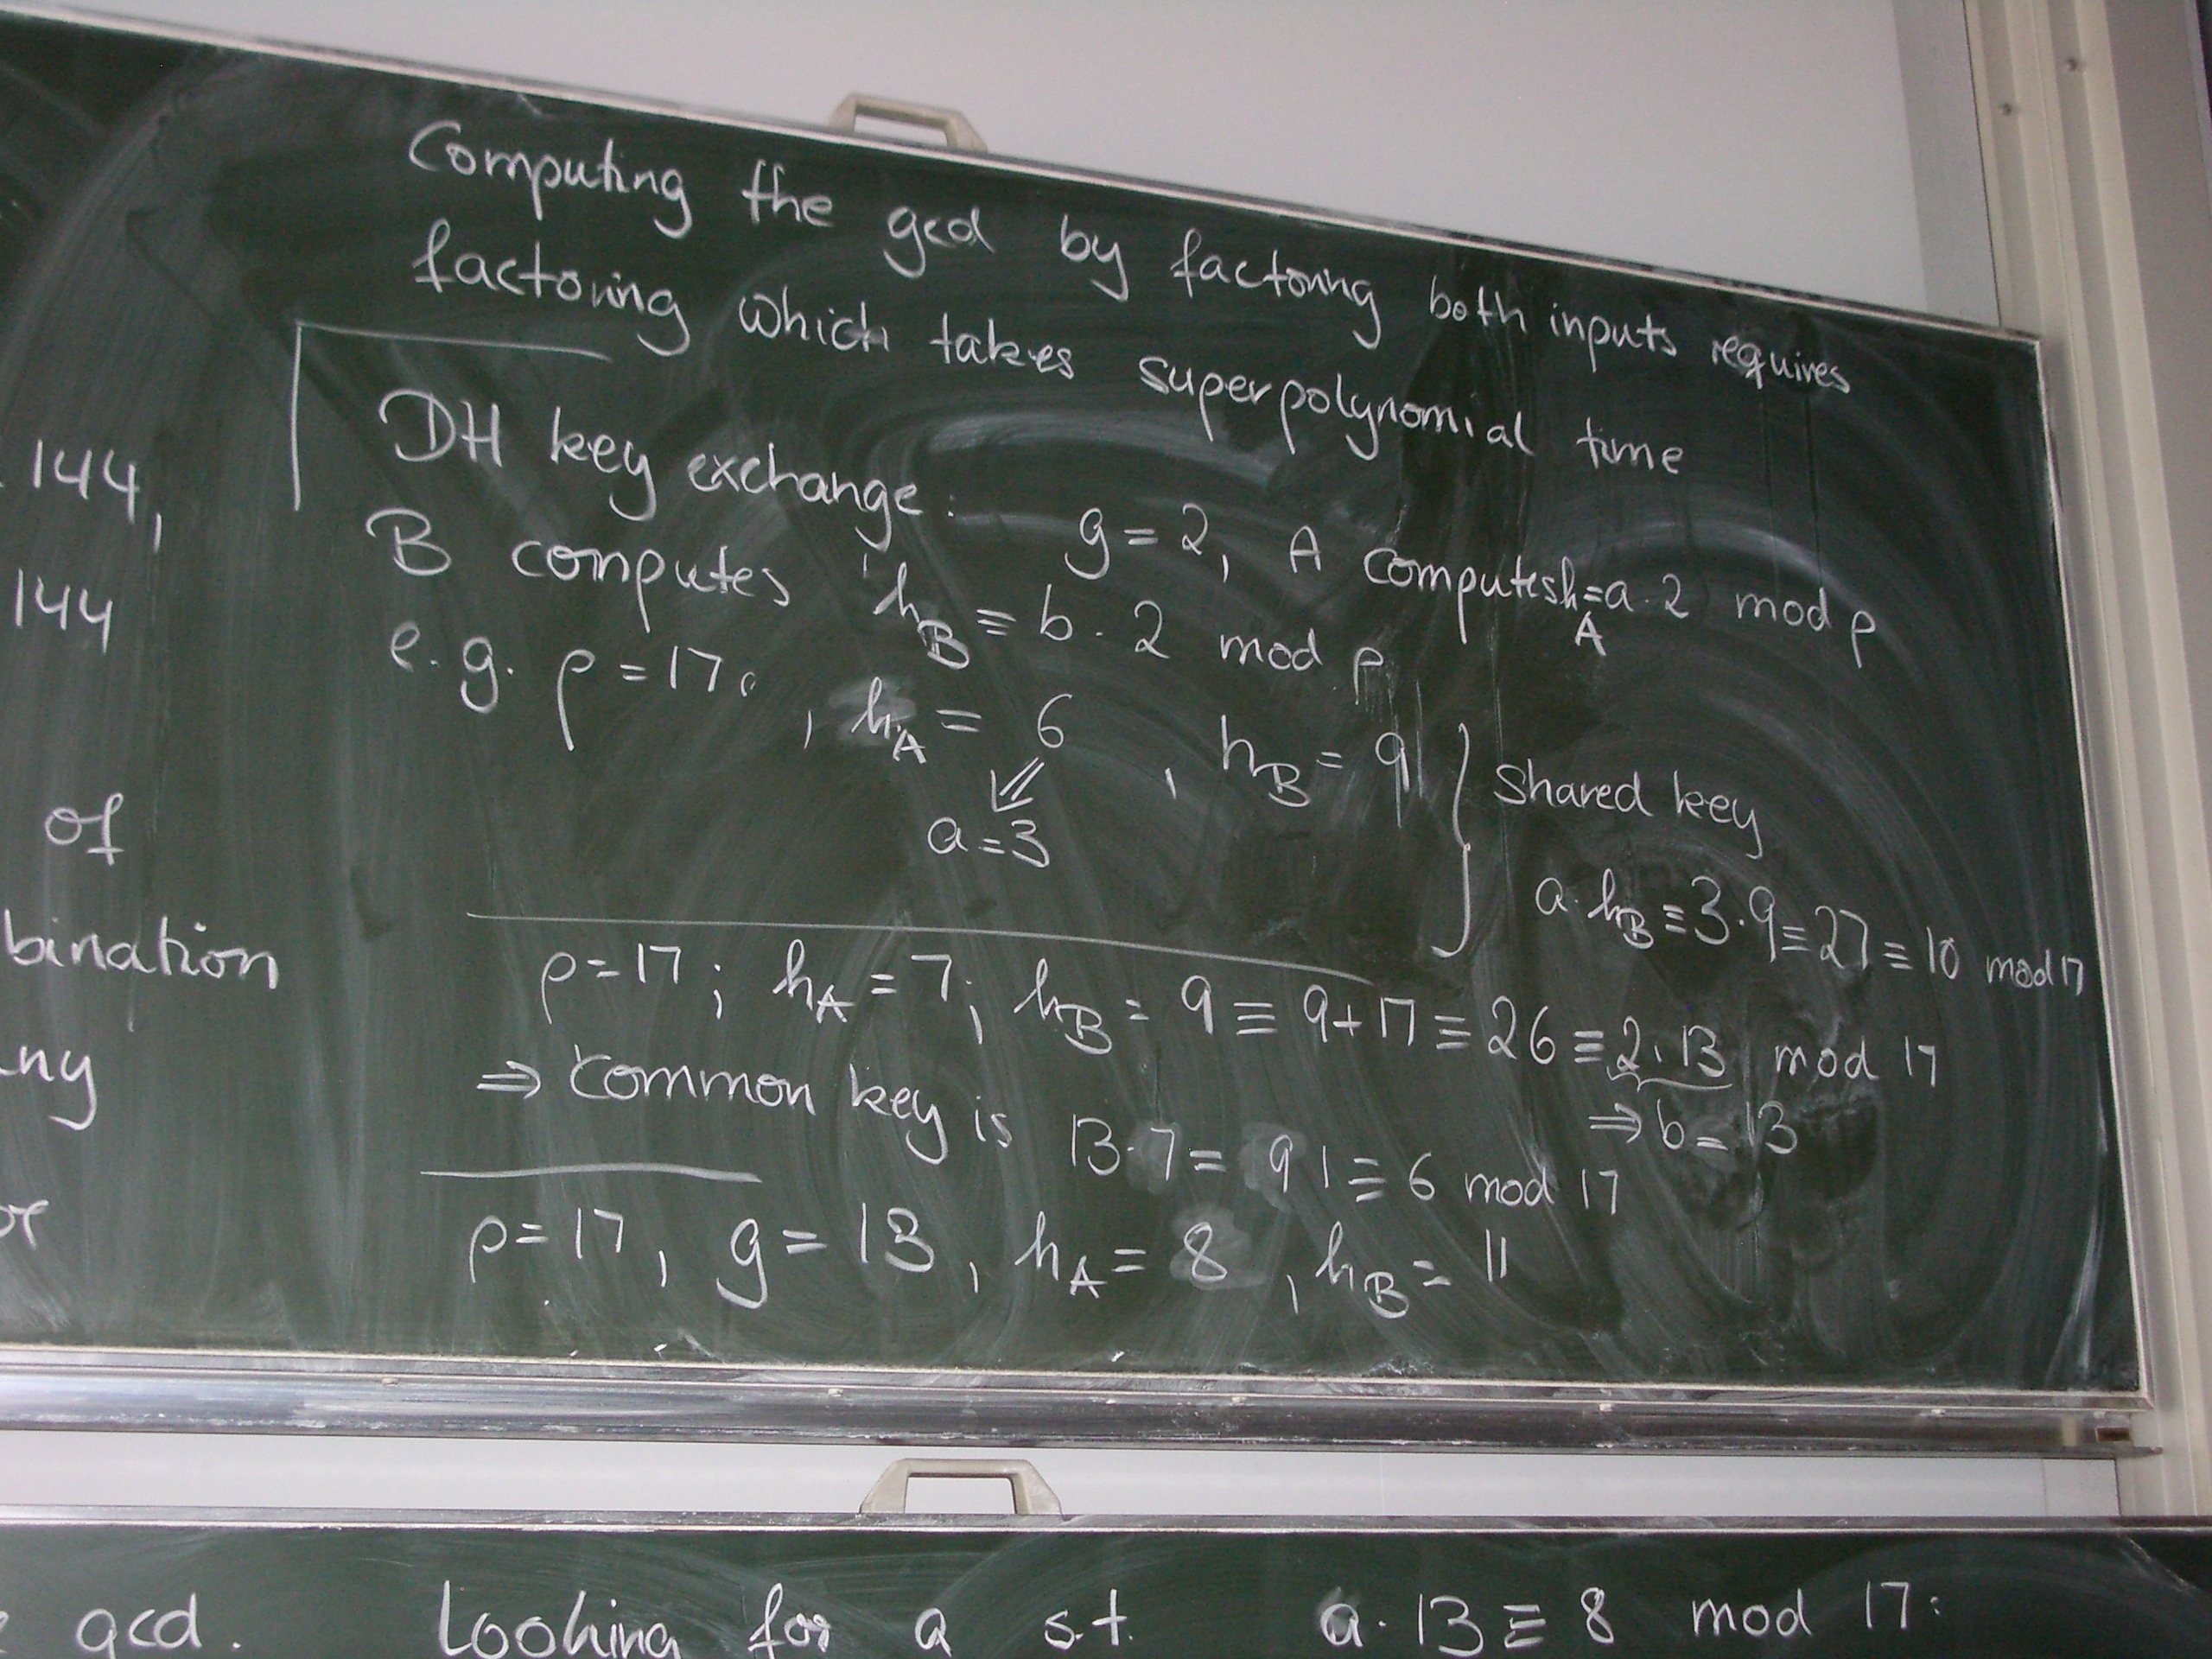 Computing the gcd by factoring both inputs requires
factoring which takes superpolynomial time
144,
144
of
bination
ny
or
DH key exchange: g = 2, A computes h_A = a · 2 mod p
B computes h_B ≡ b · 2 mod p
e.g. p = 17, h_A = 6, h_B = 9 } Shared key
⇙
a = 3
a · h_B ≡ 3 · 9 ≡ 27 ≡ 10 mod 17
p = 17; h_A = 7; h_B = 9 ≡ 9 + 17 ≡ 26 ≡ 2 · 13 mod 17
⇒ b = 13
⇒ Common key is 13 · 7 = 91 ≡ 6 mod 17
p = 17, g = 13, h_A = 8, h_B = 11
gcd.
Looking for a s.t. a · 13 ≡ 8 mod 17: